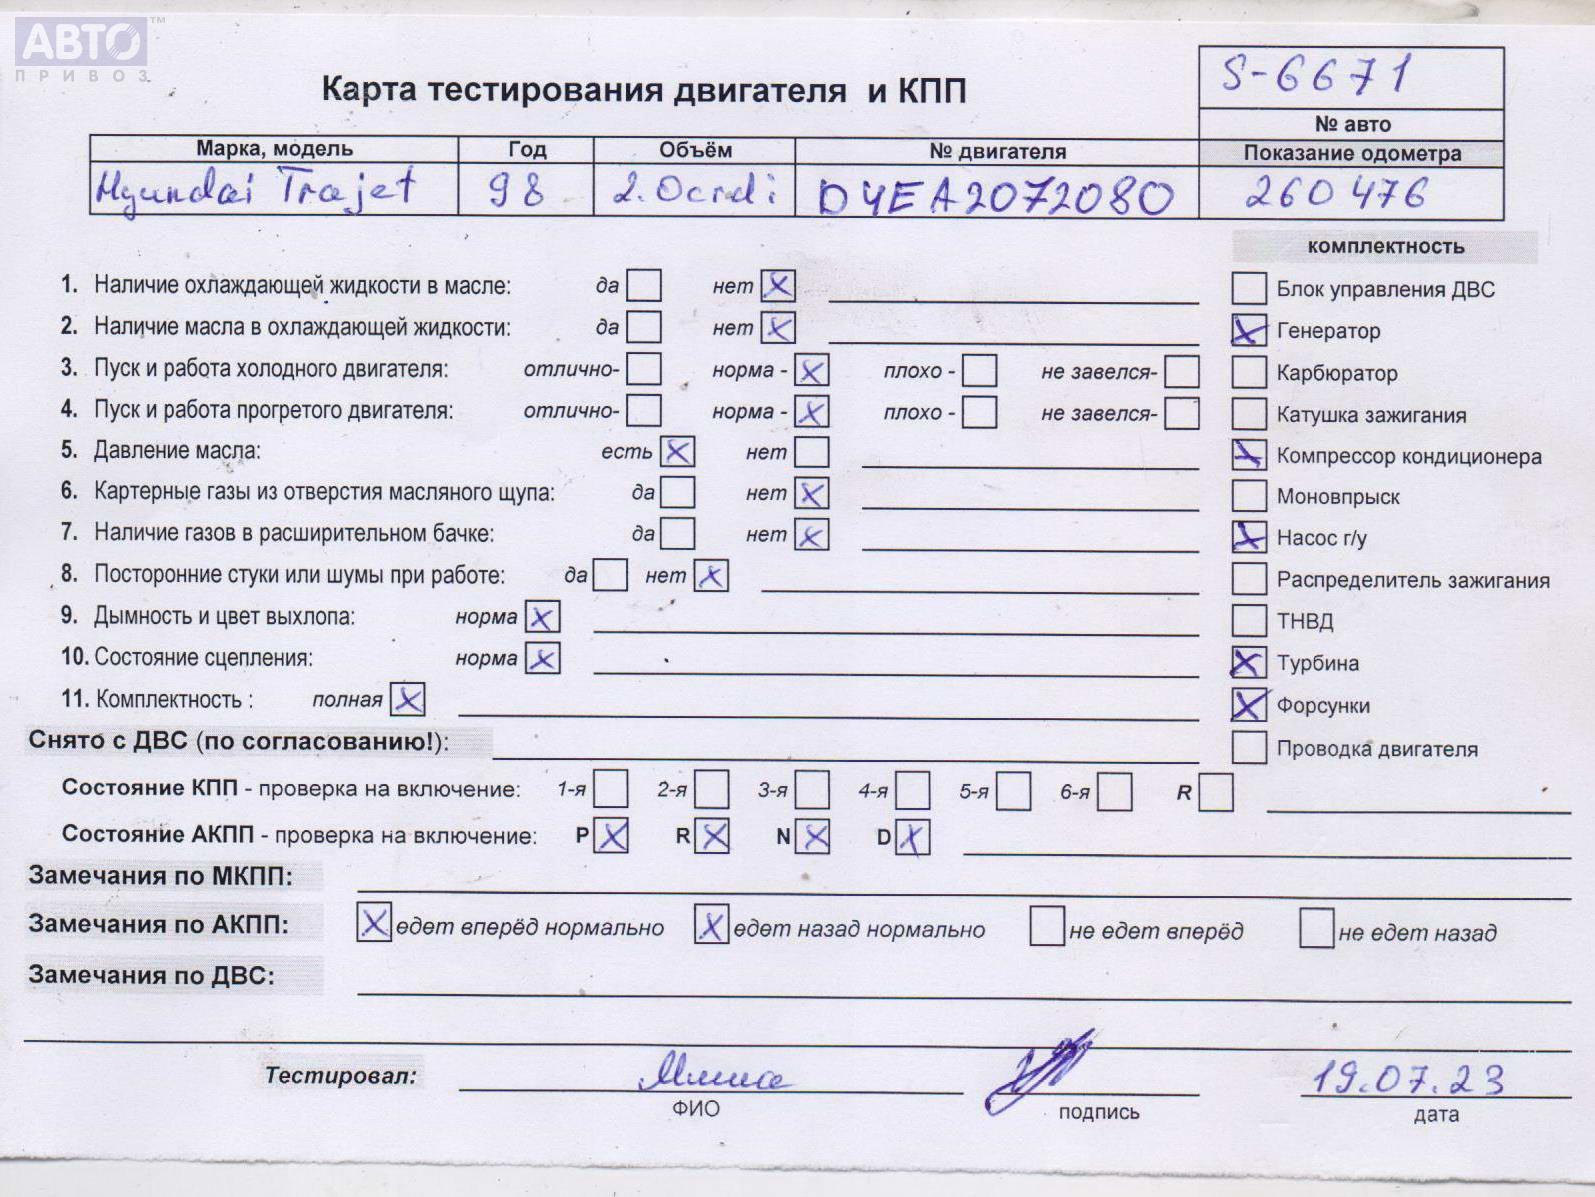 АВТО™
ПРИВОЗ
S-6671
Карта тестирования двигателя и КПП
№ авто
Марка, модель Год Объём № двигателя Показание одометра
Hyundai Trajet 98 2.0crdi D4EA2072080 260476
комплектность
1. Наличие охлаждающей жидкости в масле: да нет Блок управления ДВС
2. Наличие масла в охлаждающей жидкости: да нет Генератор
3. Пуск и работа холодного двигателя: отлично- норма - плохо - не завелся- Карбюратор
4. Пуск и работа прогретого двигателя: отлично- норма - плохо - не завелся- Катушка зажигания
5. Давление масла: есть нет Компрессор кондиционера
6. Картерные газы из отверстия масляного щупа: да нет Моновпрыск
7. Наличие газов в расширительном бачке: да нет Насос г/у
8. Посторонние стуки или шумы при работе: да нет Распределитель зажигания
9. Дымность и цвет выхлопа: норма ТНВД
10. Состояние сцепления: норма Турбина
11. Комплектность : полная Форсунки
Снято с ДВС (по согласованию!): Проводка двигателя
Состояние КПП - проверка на включение: 1-я 2-я 3-я 4-я 5-я 6-я R
Состояние АКПП - проверка на включение: P R N D
Замечания по МКПП:
Замечания по АКПП: едет вперёд нормально едет назад нормально не едет вперёд не едет назад
Замечания по ДВС:
Тестировал: 19.07.23
ФИО подпись дата